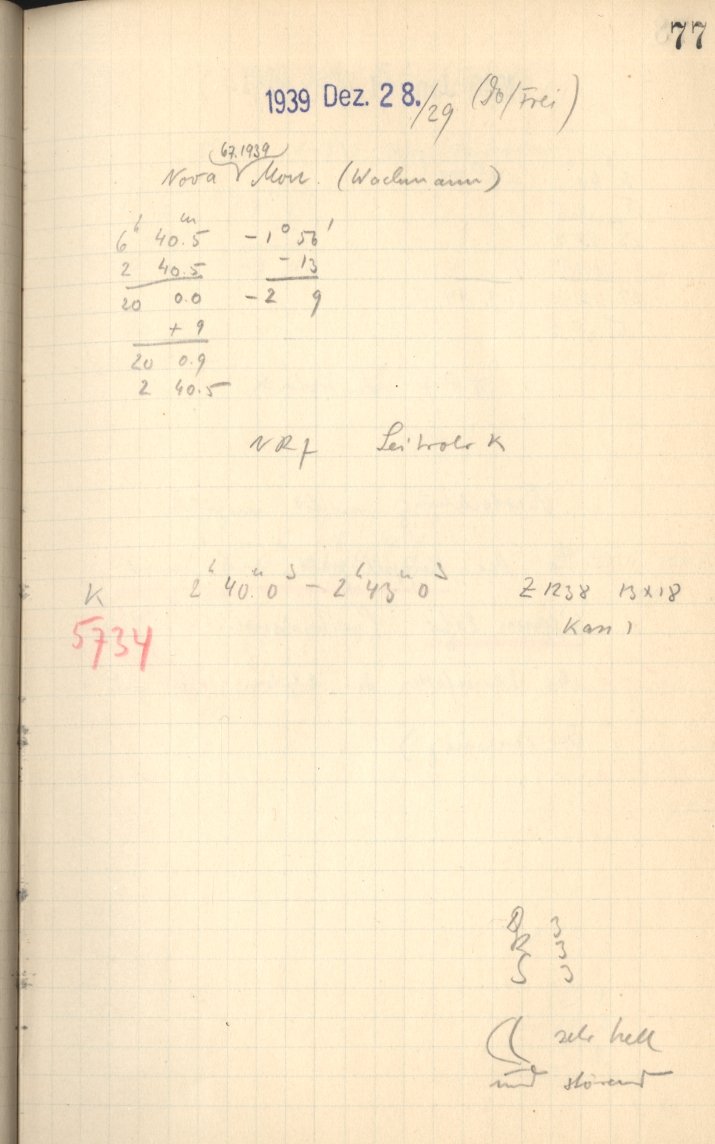 77
1939 Dez. 28./29 (Do/Frei)
67.1939
Nova Mon. (Wachmann)
6h 40.5m -1° 56'
2 40.5 - 13
20 0.0 -2 9
+ 9
20 0.9
2 40.5
NRf Leitrohr K
K 2h 40.m0s - 2h 43m 0s Z 1238 13x18
5734 Kass 1
D 3
R 3
S 3
☾ sehr hell
und störend